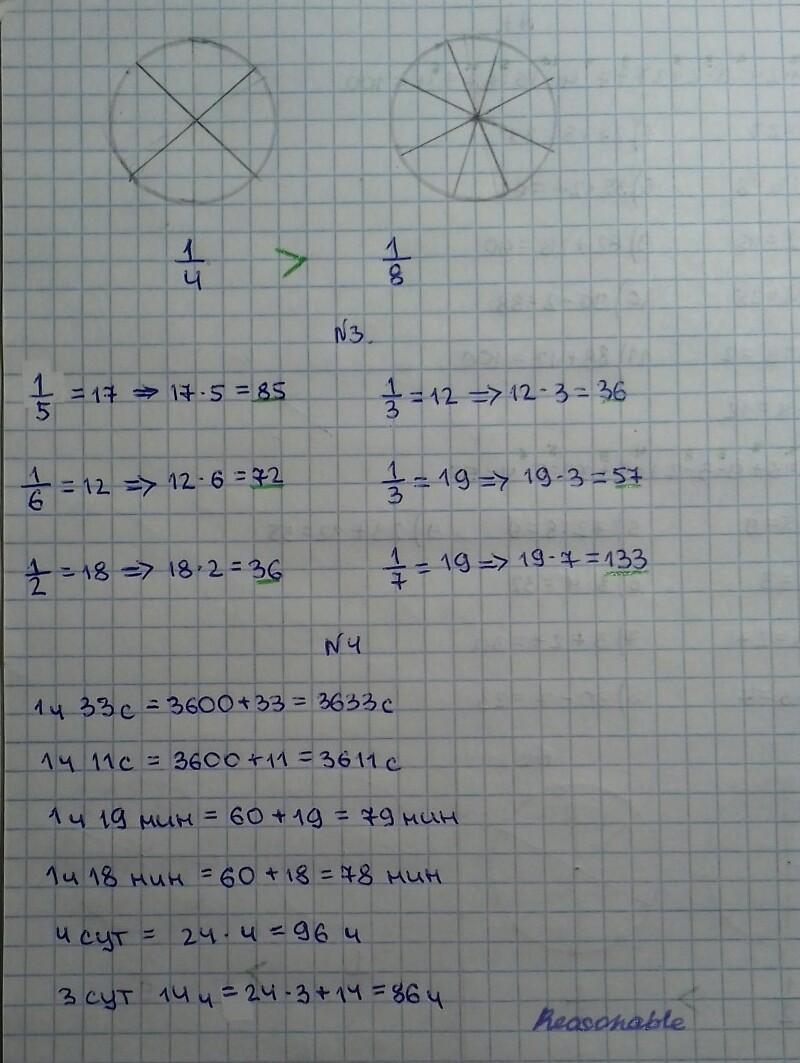 1/4 > 1/8
N3.
1/5 = 17 => 17·5 = 85
1/3 = 12 => 12·3 = 36
1/6 = 12 => 12·6 = 72
1/3 = 19 => 19·3 = 57
1/2 = 18 => 18·2 = 36
1/7 = 19 => 19·7 = 133
N4
1ч 33с = 3600+33 = 3633с
1ч 11с = 3600+11 = 3611с
1ч 19 мин = 60+19 = 79 мин
1ч 18 мин = 60+18 = 78 мин
4 сут = 24·4 = 96 ч
3 сут 14ч = 24·3+14 = 86ч
Reasonable